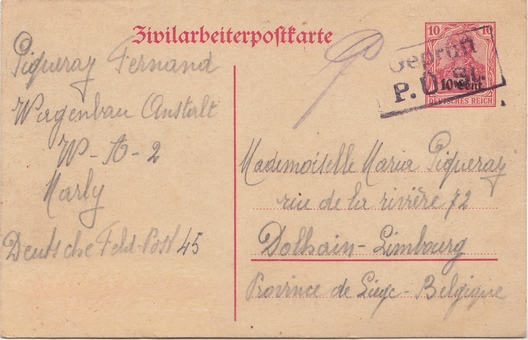 Zivilarbeiterpostkarte
Piqueray Fernand
Wagenbau Anstalt
W-A-2
Marly
Deutsche Feld-Post 45
10 10
10 Cent.
DEUTSCHES REICH
Geprüft
P.Ü.St.
Mademoiselle Maria Piqueray
rue de la rivière 72
Dolhain-Limbourg
Province de Liege - Belgique